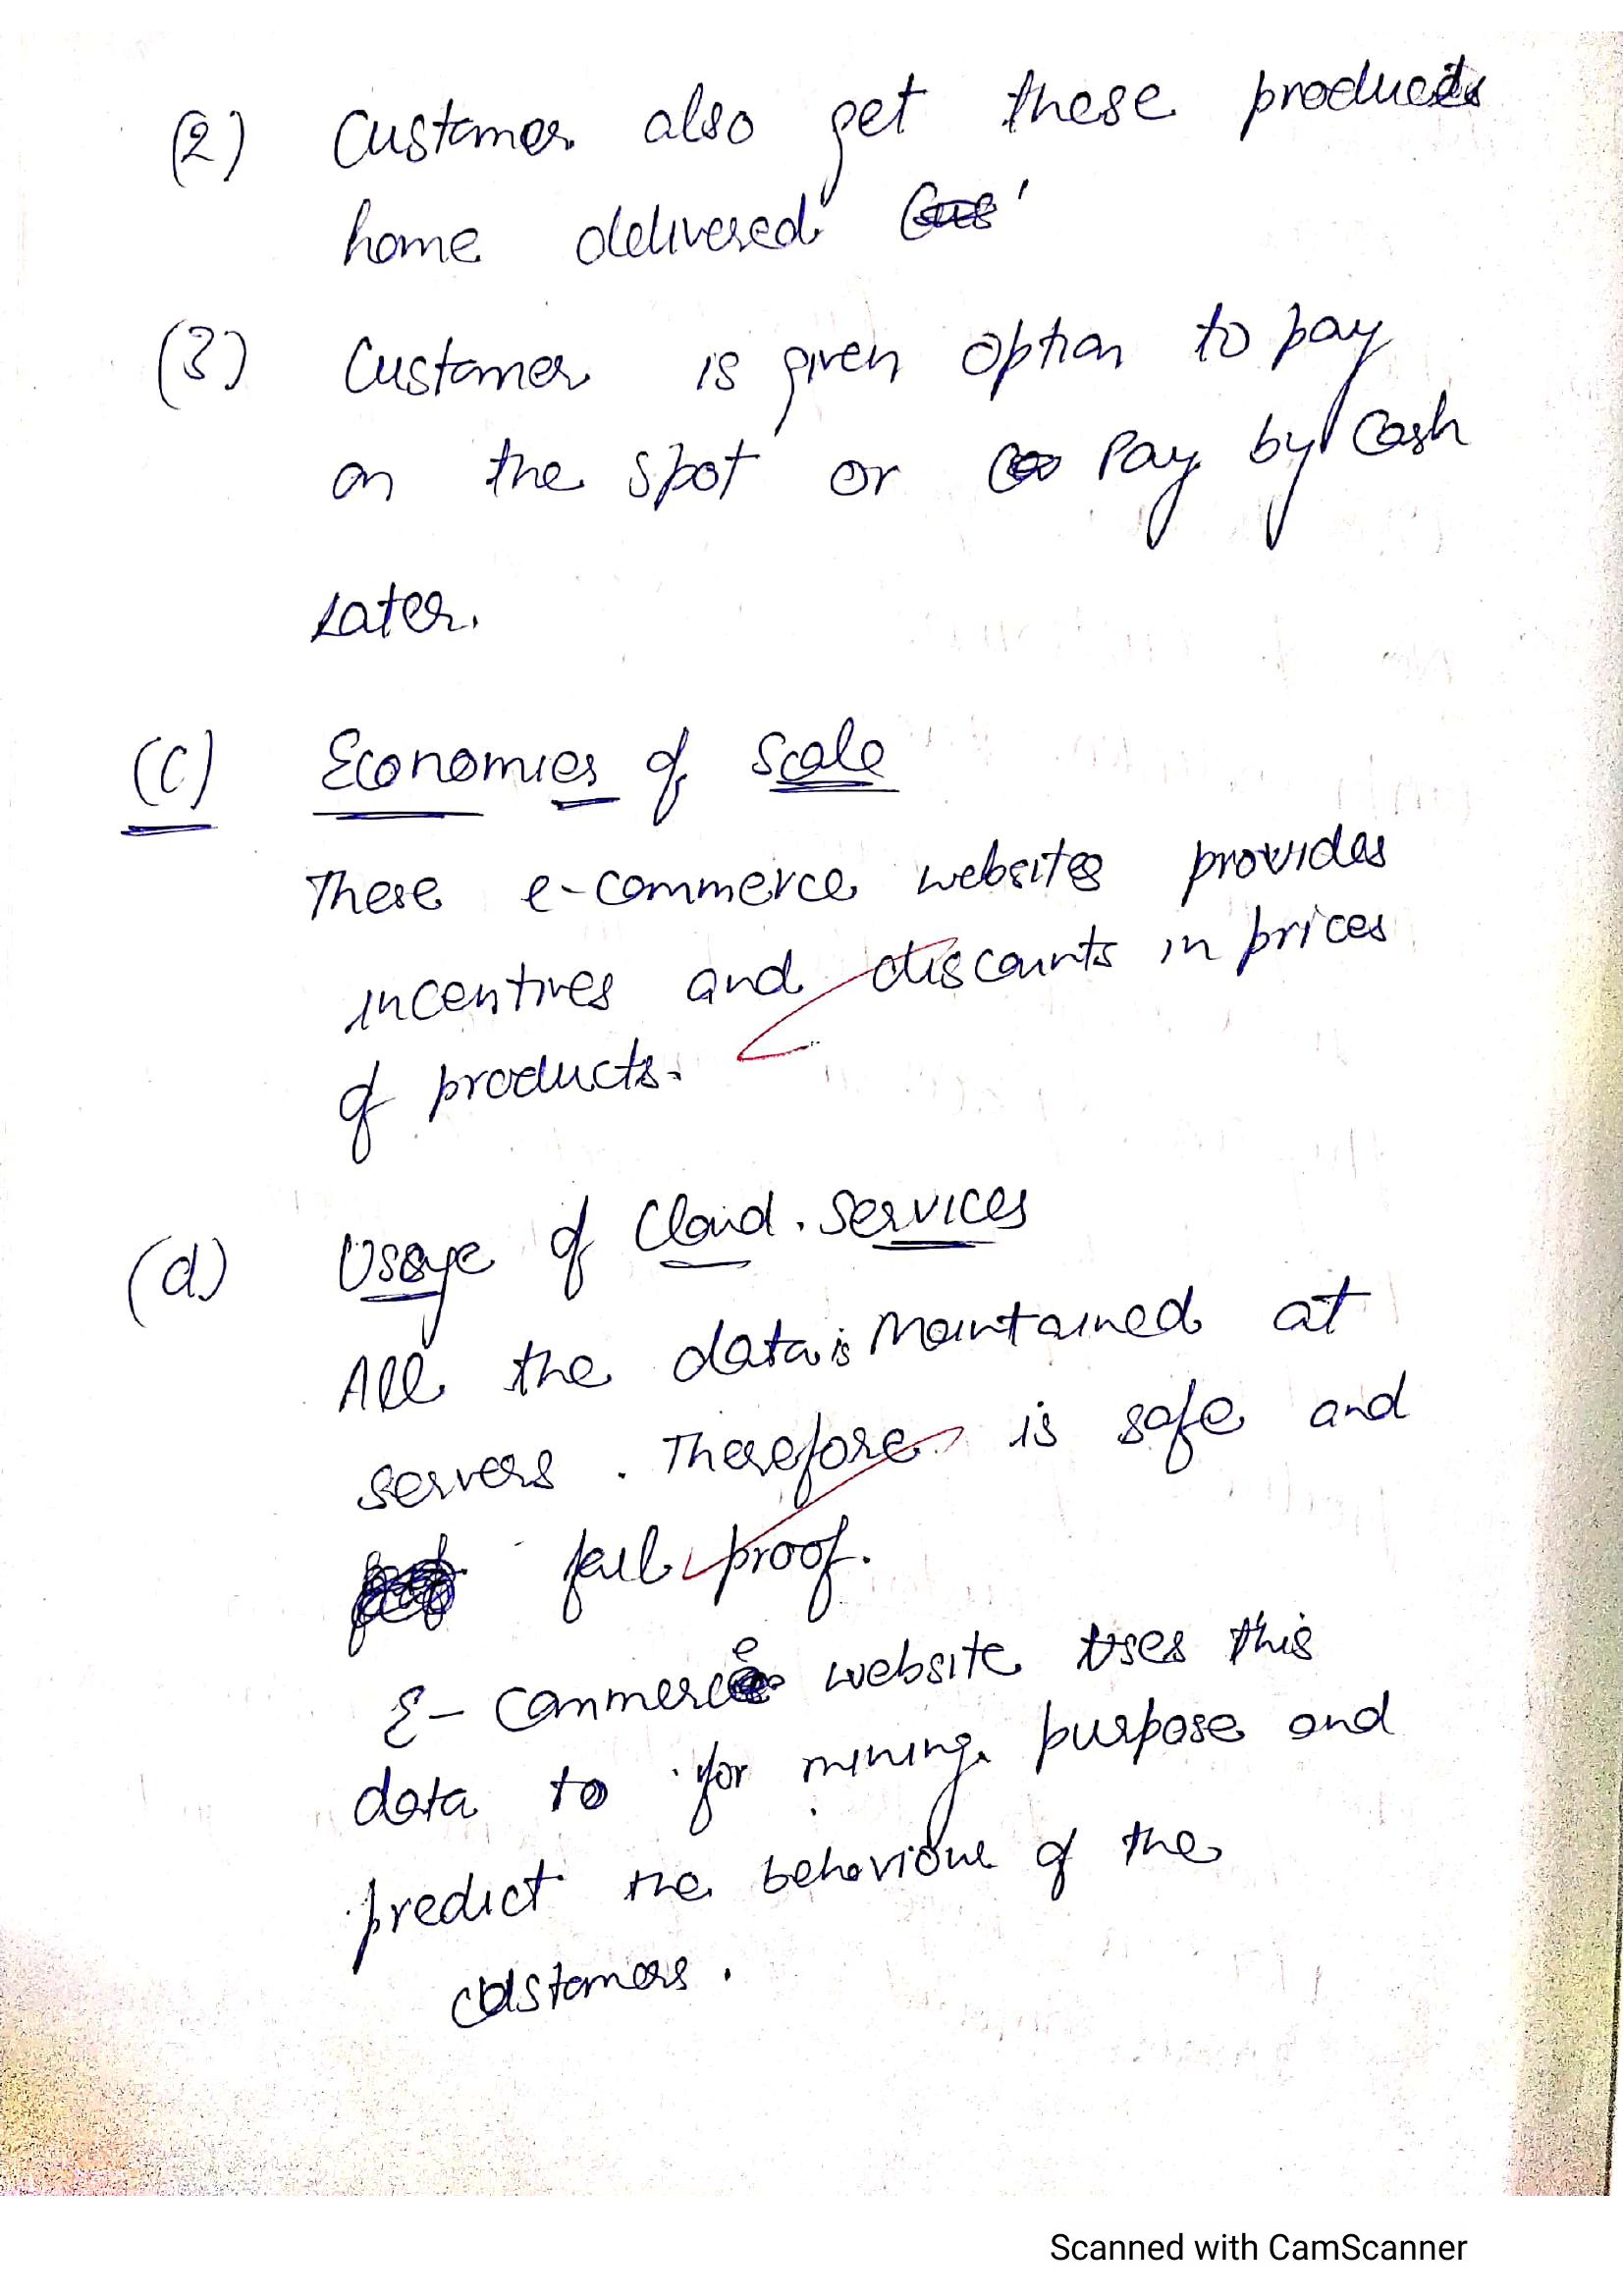 (2) Customer also get these products
home delivered
(3) Customer is given option to pay
on the spot or Pay by Cash
Later.
(C) Economies of Scale
These e-commerce websites provides
incentives and discounts in prices
of products.
(d) Usage of Cloud. Services
All the data is Maintained at
servers. Therefore is safe and
fail proof.
E-Commerce website uses this
data to for mining purpose and
predict the behaviour of the
customers.
Scanned with CamScanner